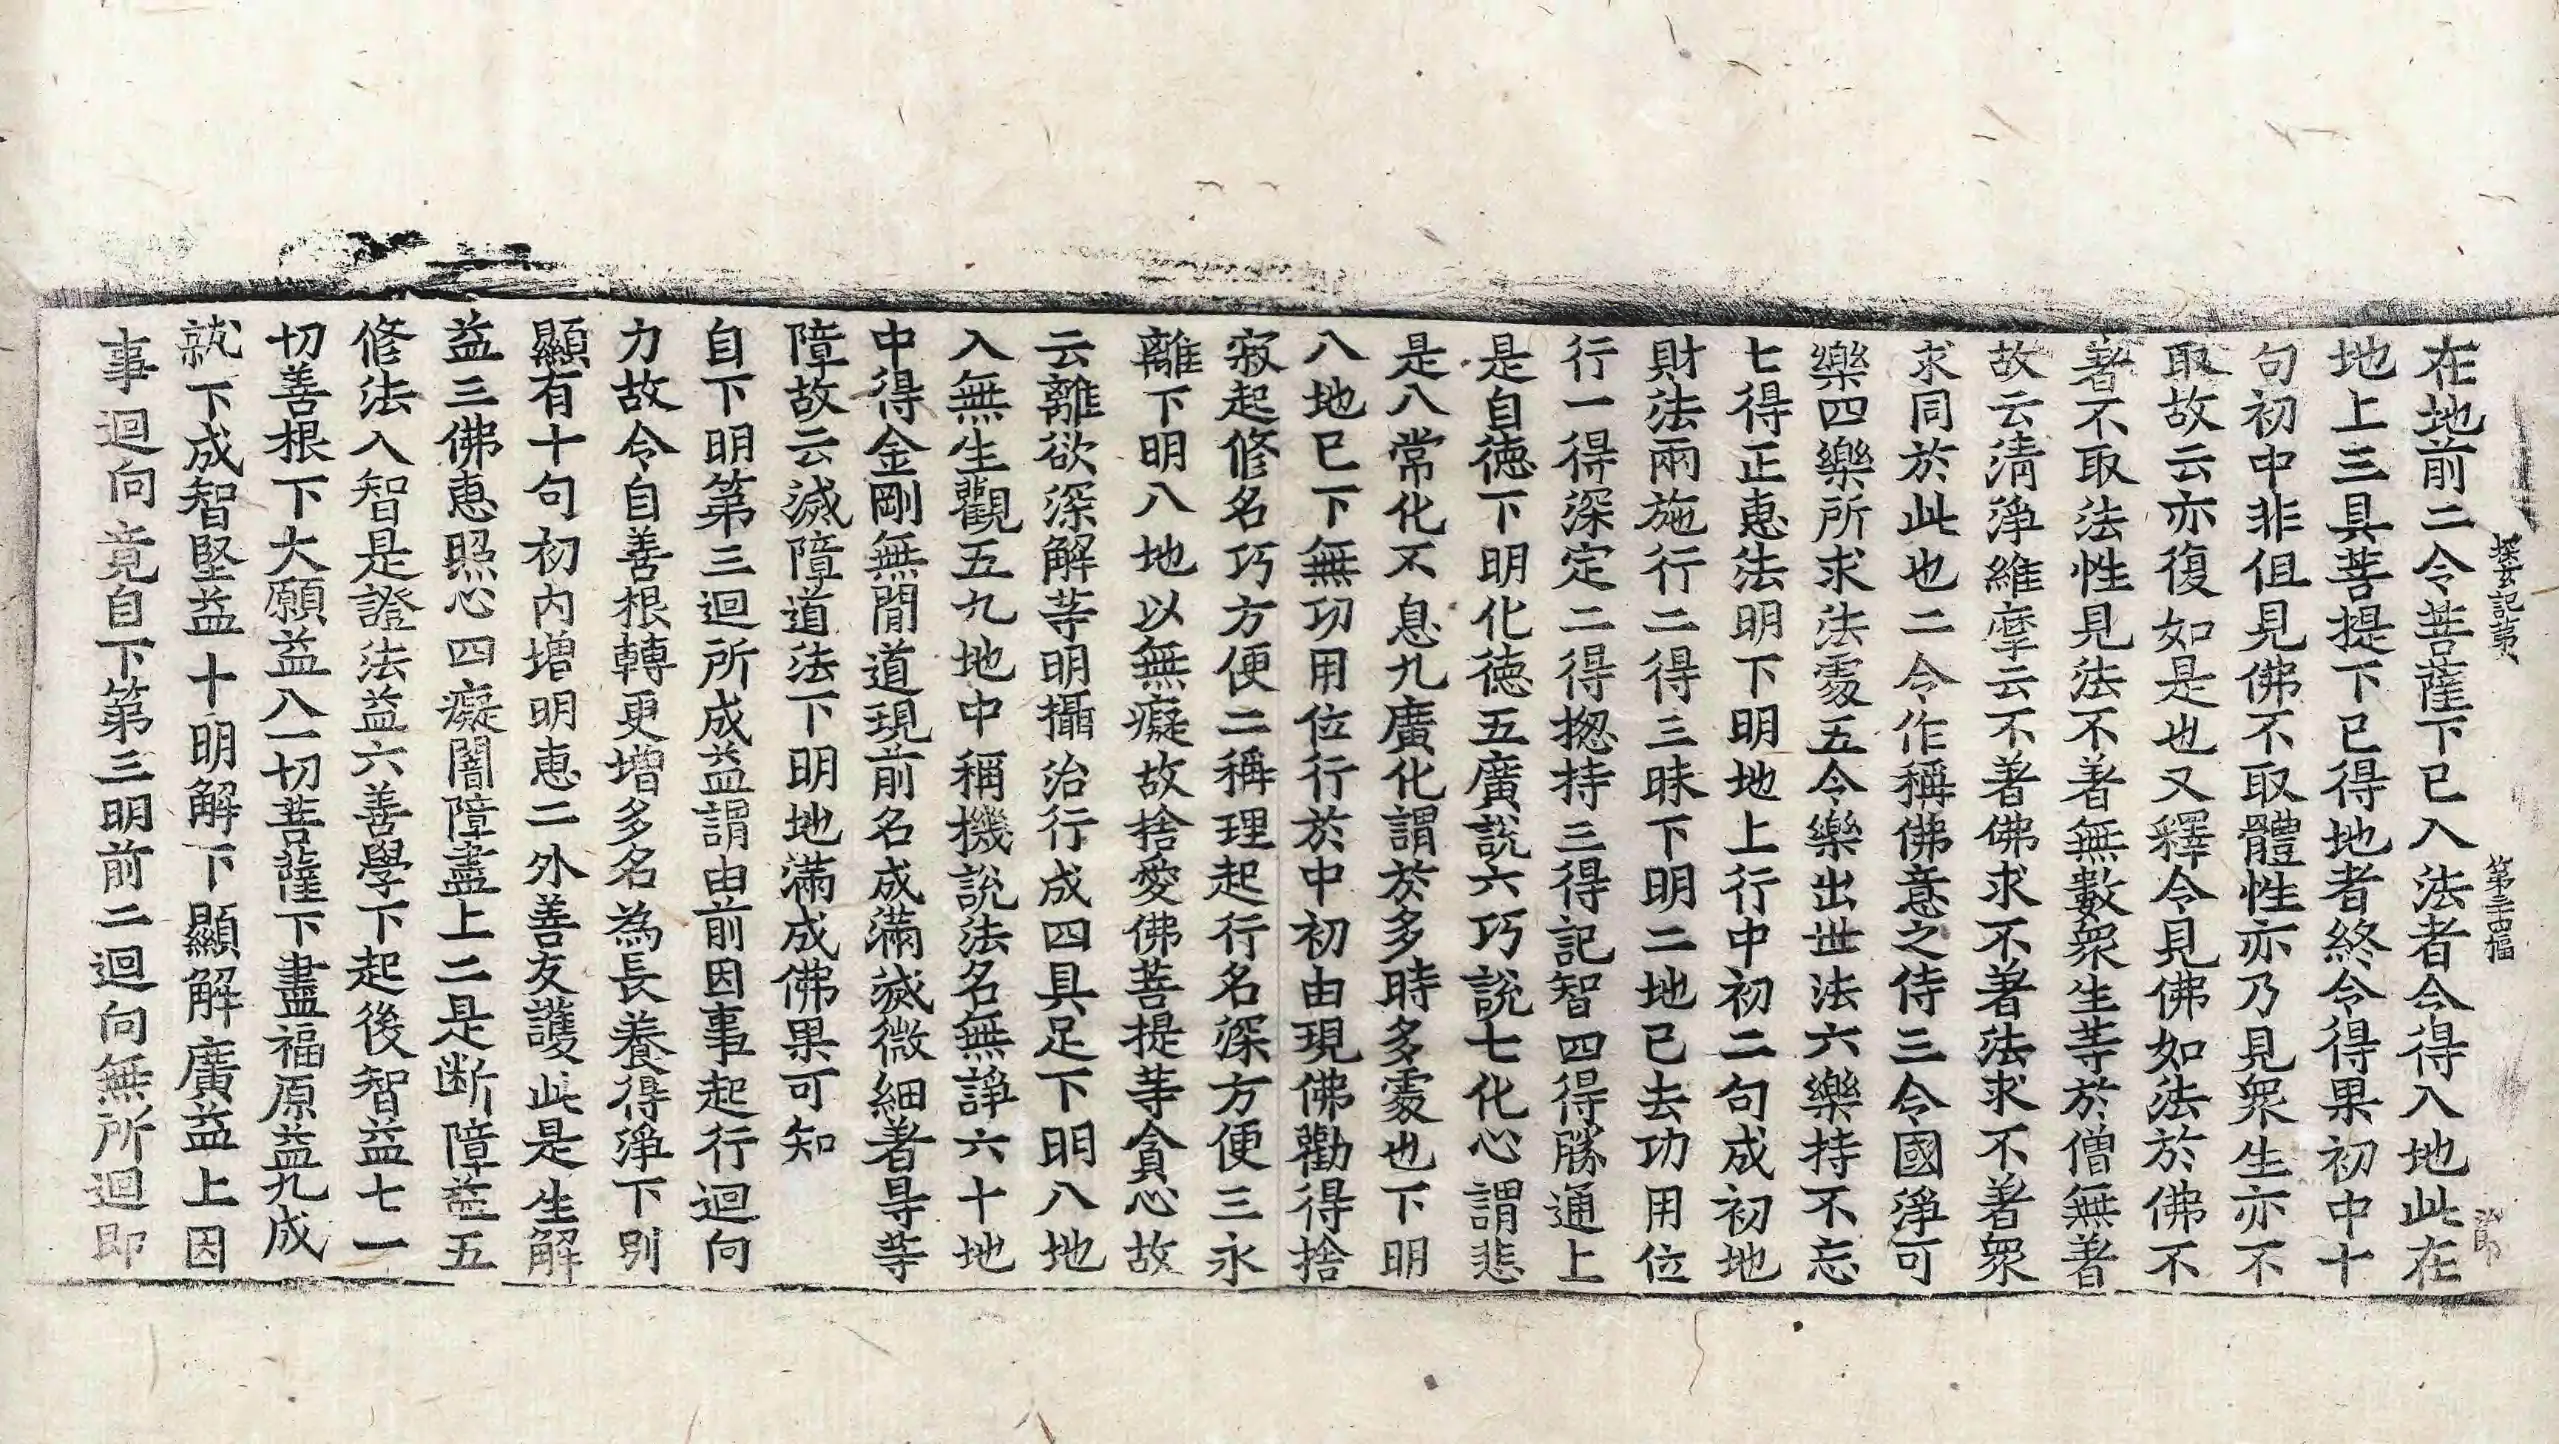 探玄記第八 第三十四幅 治郎
在地前二令菩薩下已入法者令得入地此在
地上三具菩提下已得地者終令得果初中十
句初中非但見佛不取體性亦乃見眾生亦不
取故云亦復如是也又釋令見佛如法於佛不
著不取法性見法不著無數眾生䓁於僧無著
故云清淨維摩云不著佛求不著法求不著眾
求同於此也二令作稱佛意之侍三令國淨可
樂四樂所求法處五令樂出世法六樂持不忘
七得正惠法明下明地上行中初二句成初地
財法兩施行二得三昧下明二地已去功用位
行一得深定二得揔持三得記智四得勝通上
是自德下明化德五廣說六巧說七化心謂悲
是八常化不息九廣化謂於多時多處也下明
八地已下無功用位行於中初由現佛勸得捨
寂起修名巧方便二稱理起行名深方便三永
離下明八地以無癡故捨愛佛菩提䓁貪心故
云離欲深解䓁明攝治行成四具足下明八地
入無生觀五九地中稱機說法名無諍六十地
中得金剛無間道現前名成滿滅微細著㝵䓁
障故云滅障道法下明地滿成佛果可知
自下明第三迴所成益謂由前因事起行迴向
力故令自善根轉更增多名為長養得淨下別
顯有十句初內增明惠二外善友護此是生解
益三佛惠照心四癡闇障盡上二是断障益五
修法入智是證法益六善學下起後智益七一
切善根下大願益八一切菩薩下盡福原益九成
就下成智堅益十明解下顯解廣益上因
事迴向竟自下第三明前二迴向無所迴即